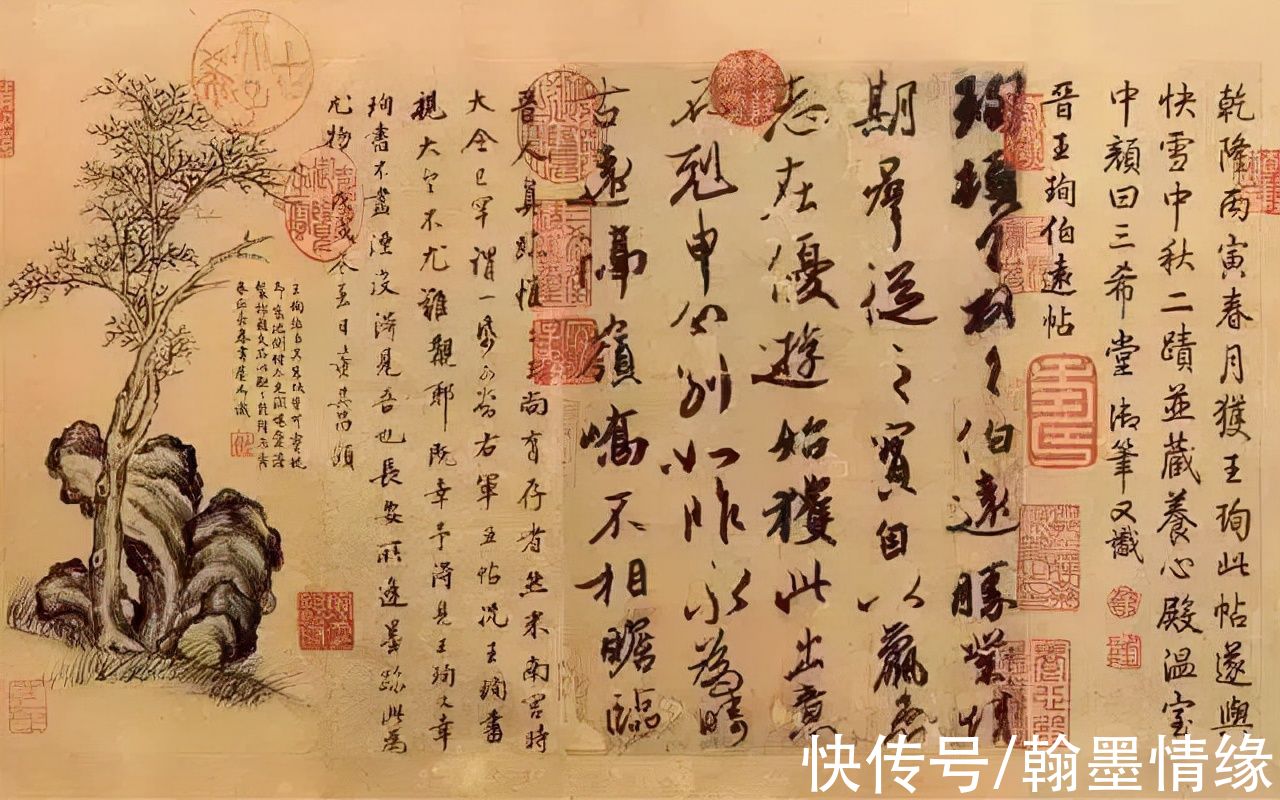 乾隆丙寅春月獲王珣此帖遂與
快雪中秋二蹟並藏養心殿温室
中顏曰三希堂 御筆又識
晉王珣伯遠帖
珣頓首頓首伯遠勝業情
期羣從之寶自以羸患
志在優遊始獲此出意
不剋申分別如昨永為疇
古遠隔嶺嶠不相瞻臨
晉人真跡惟二王尚有存者然米南宮時
大令已罕謂一紙可當右軍五帖況王珣書
視大令不尤難覯耶既幸予得見王珣又幸
珣書不盡湮沒得見吾也長安所逢墨跡此為
尤物 戊戌冬至日董其昌題
快传号/翰墨情缘